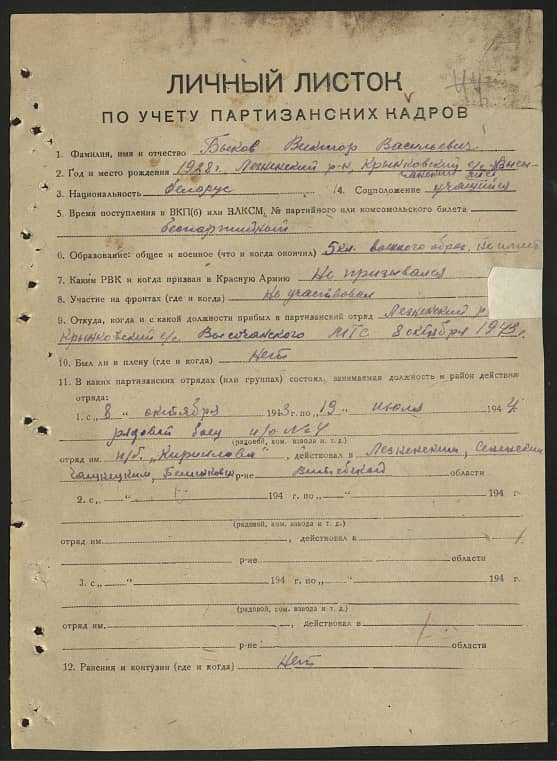 ЛИЧНЫЙ ЛИСТОК
ПО УЧЕТУ ПАРТИЗАНСКИХ КАДРОВ
1. Фамилия, имя и отчество Быков Виктор Васильевич
2. Год и место рождения 1928 г. Лезненский р-н, Крынковский с/с
3. Национальность белорус 4. Соцположение учащийся
5. Время поступления в ВКП(б) или ВЛКСМ, № партийного или комсомольского билета
беспартийный
6. Образование: общее и военное (что и когда окончил) 5 кл. военного образ. не имеет
7. Каким РВК и когда призван в Красную Армию Не призывался
8. Участие на фронтах (где и когда) Не участвовал
9. Откуда, когда и с какой должности прибыл в партизанский отряд Лезненский р.
Крынковский с/с. Высочанского МТС 8 октября 1943 г.
10. Был ли в плену (где и когда) Нет
11. В каких партизанских отрядах (или группах) состоял, занимаемая должность и район действия
отряда:
1. с „ 8 " октября 1943 г. по „ 19 " июля 1944 г.
рядовой боец п/о № 4
(рядовой, ком. взвода и т. д.)
отряд им. п/б. „Кириллова", действовал в Лезненским, Сененским
р-не Витебской области
2. с „ " 194 г. по „ " 194 г.
(рядовой, ком. взвода и т. д.)
отряд им. , действовал в
р-не области
3. с „ " 194 г. по „ " 194 г.
(рядовой, ком. взвода и т. д.)
отряд им. , действовал в
р-не области
12. Ранения и контузии (где и когда) Нет